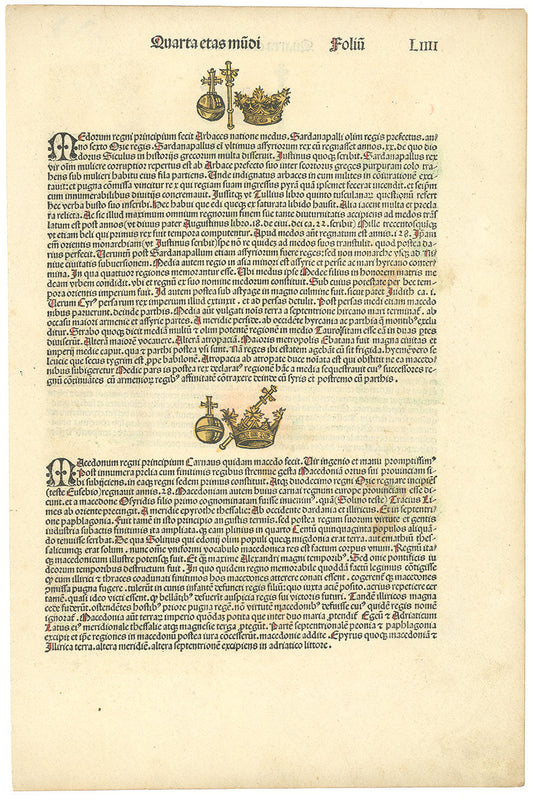 Quarta etas mũdi Foliũ LIIII
MEdorum regni principium fecit Arbaces natione medus. Sardanapalli olim regis prefectus. an/
no sexto Ozie regis. Sardanapallus eni vltimus assyriorum rex cũ regnasset annos. xx. de quo dio
dorus Siculus in historijs grecorum multa disseruit. Justinus quoq; scribit. Sardanapallus rex
vir oĩm muliere corruptior repertus est ab Arbace prefecto suo inter scortorum greges purpuram colo tra/
hens sub mulieri habitu eius fila partiens. Unde indignatus arbaces in eum milites in cõiurationẽ exci/
tauit: et pugna cõmissa vincitur rex qui regiam suam ingressus pyrã quã ipsemet fecerat incendit. et seipm
cum innumerabilibus diuitijs concremauit.
hec verba busto suo inserbi. Hec habui que edi quecq; exsaturata libido hausit. Alia iacent multa et precla
ra relicta. Ac sic illud maximum omnium regnorum finem suc tante diuturnitatis accipiens ad medos trãs
latum est post annos (vt diuus pater Augustinus libro. 18. de ciui. dei ca. 21. scribit) Mille trecentosquicq;
vt etiam beli qui primus rex fuit tempora computentur. Apud medos aũt regnatum est annis.
em orientis monarchiam (vt Justinus scribit)
rius perfecit. Verunt post Sardanapallum etiam assyriorum fuere reges: sed non monarche
niue ciuitatis subuersionem. Media autem regio in asia minori est assyrie et perse ac mari hyrcano contermina.
mina. In qua quattuor regiones memorantur esse. Vbi medus ipse Medee filius in honorem matris me
deam vrbem condidit. vbi et regnũ ex suo nomine medorum constituit. Sub cuius potestate per hec tem/
pora orientis imperium fuit. Id autem postea sub astyage in magno culmine fuit. sicut patet Judith ca. i.
Verum Cyrus persarum rex imperium illud extinxit. et ad persas detulit. Post persas medi etiam macedo
nibus paruerunt. deinde parthis. Media aũt vulgari nois terra a septentrione hircano mari terminatur. ab
occasu maiori armenie et assyrie partes. A meridie perside. ab occidẽte hyrcania ac parthia
ditur. Strabo quoq; dicit mediã multũ et olim potentẽ regionẽ in medio Tauro sitam esse eã in duas ptes
diuiserunt. Altera maiorẽ vocauere. Altera atropaciã. Maioris metropolis Ecbatana fuit magna ciuitas et
imperij medie caput. qua et parthi postea vsi sunt. nã reges ibi estatem agebãt eũ sit frigida. hyemẽ vero se
leucie que secus tygrim est ppe babilonẽ. Atropacia ab atropate duce notata est qui obstitit ne ea macedo/
nibus subigeretur Medie pars is postea rex declaratus regionẽ hãc a media sequestrauit eius successores re/
gnũ cõtinuãtes cũ armenioru regibus affinitatẽ cõtraxere deinde cũ syris et postremo cũ parthis.
MAcedonum regni principium Carnaus quidam macedo fecit. Uir ingenio et manu promptissimus
Post innumera prelia cum finitimis regibus strennue gesta Macedoniã ortus sui prouinciam si
bi subijciens. in eaq; regni sedem primus constituit. Atq; duodecimo regni Ozie regnare incipiẽs
(teste Eusebio) regnauit annis. 28. Macedoniam autem huius carnai regnum europe prouinciam esse di/
cunt. et a macedone Osyridis filio primo cognominatam fuisse inuenimus. quã (Solino teste) Tracius li
mes ab oriente precingit. A meridie epyrothe thessalie: Ab occidente dardania et illiricus. Et in septentri
one paphlagonia. Fuit tamẽ in isto principio angustis terminis. sed postea regum suorum virtute et gentis
industria subactis finitimis ita ampliata. vt eam plinius in quarto Centũ quinquaginta populos aliquã
do tenuisse scribat. De qua Solinus qui edonij olim populi queq; migdonia erat terra. aut emathiũ thes/
salicumq; erat solum. nunc omne vniformi vocabulo macedonica res est factum corpus vnum. Regnũ ita/
q; macedonicum illustre potensq; fuit. Et maxime Alexandri magni temporibus. Sed onie pontificis iu
deorum temporibus destructum fuit. In quo quidem regno memorabile quoddã factũ legimus cõtigisse
cum illirici et thraces coadunati finitimos hos macedones atterere conati essent. cogerentque macedones
omissa pugna fugere. tulerũt in cunis infantẽ defuncti regis filiũ: quo iuxta aciẽ posito. acrius repetiere cer
tamẽ. quasi ideo victi essent. defuerit auspicia regis sui victoris futuri. Tandẽ illiricos magna
cede fuderunt. ostendẽtes hostibus priore pugna regẽ. nõ virtutẽ macedonibus defuisse
ignorat. Macedonia aũt terrarum imperio quõdam potita que inter duo maria ptenditur Egeũ et Adriaticum
Latus eius meridionale thessalie atq; magnesie terga ptegũt. Partẽ septentrionalẽ peonia et paphlagonia
excipit et ipe regiones in macedonũ postea iura cõcesserunt. macedonie addite. Epyrus quoq; macedoniã et
Illirica terra. altera meridiẽ. altera septentrionẽ excipiens in adriatico littore.